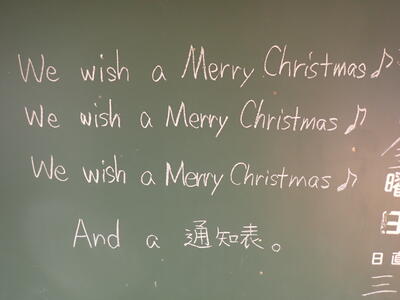 We wish a Merry Christmas♪
We wish a Merry Christmas♪
We wish a Merry Christmas♪
And a 通知表。
曜
日
日直
三